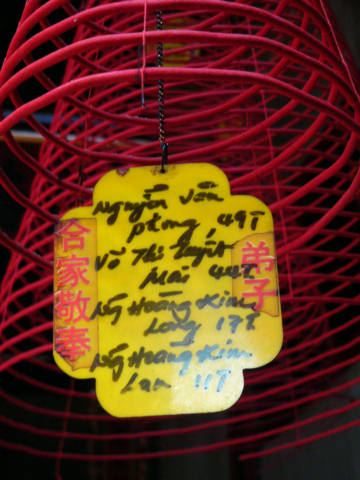 Nguyễn Văn
Phong, 49T
Võ Thị Tuyết
Mai 44T
Ng̃ Hoàng Kim
Long 17T
Ng̃ Hoàng Kim
Lan 11T
合家敬奉
弟子